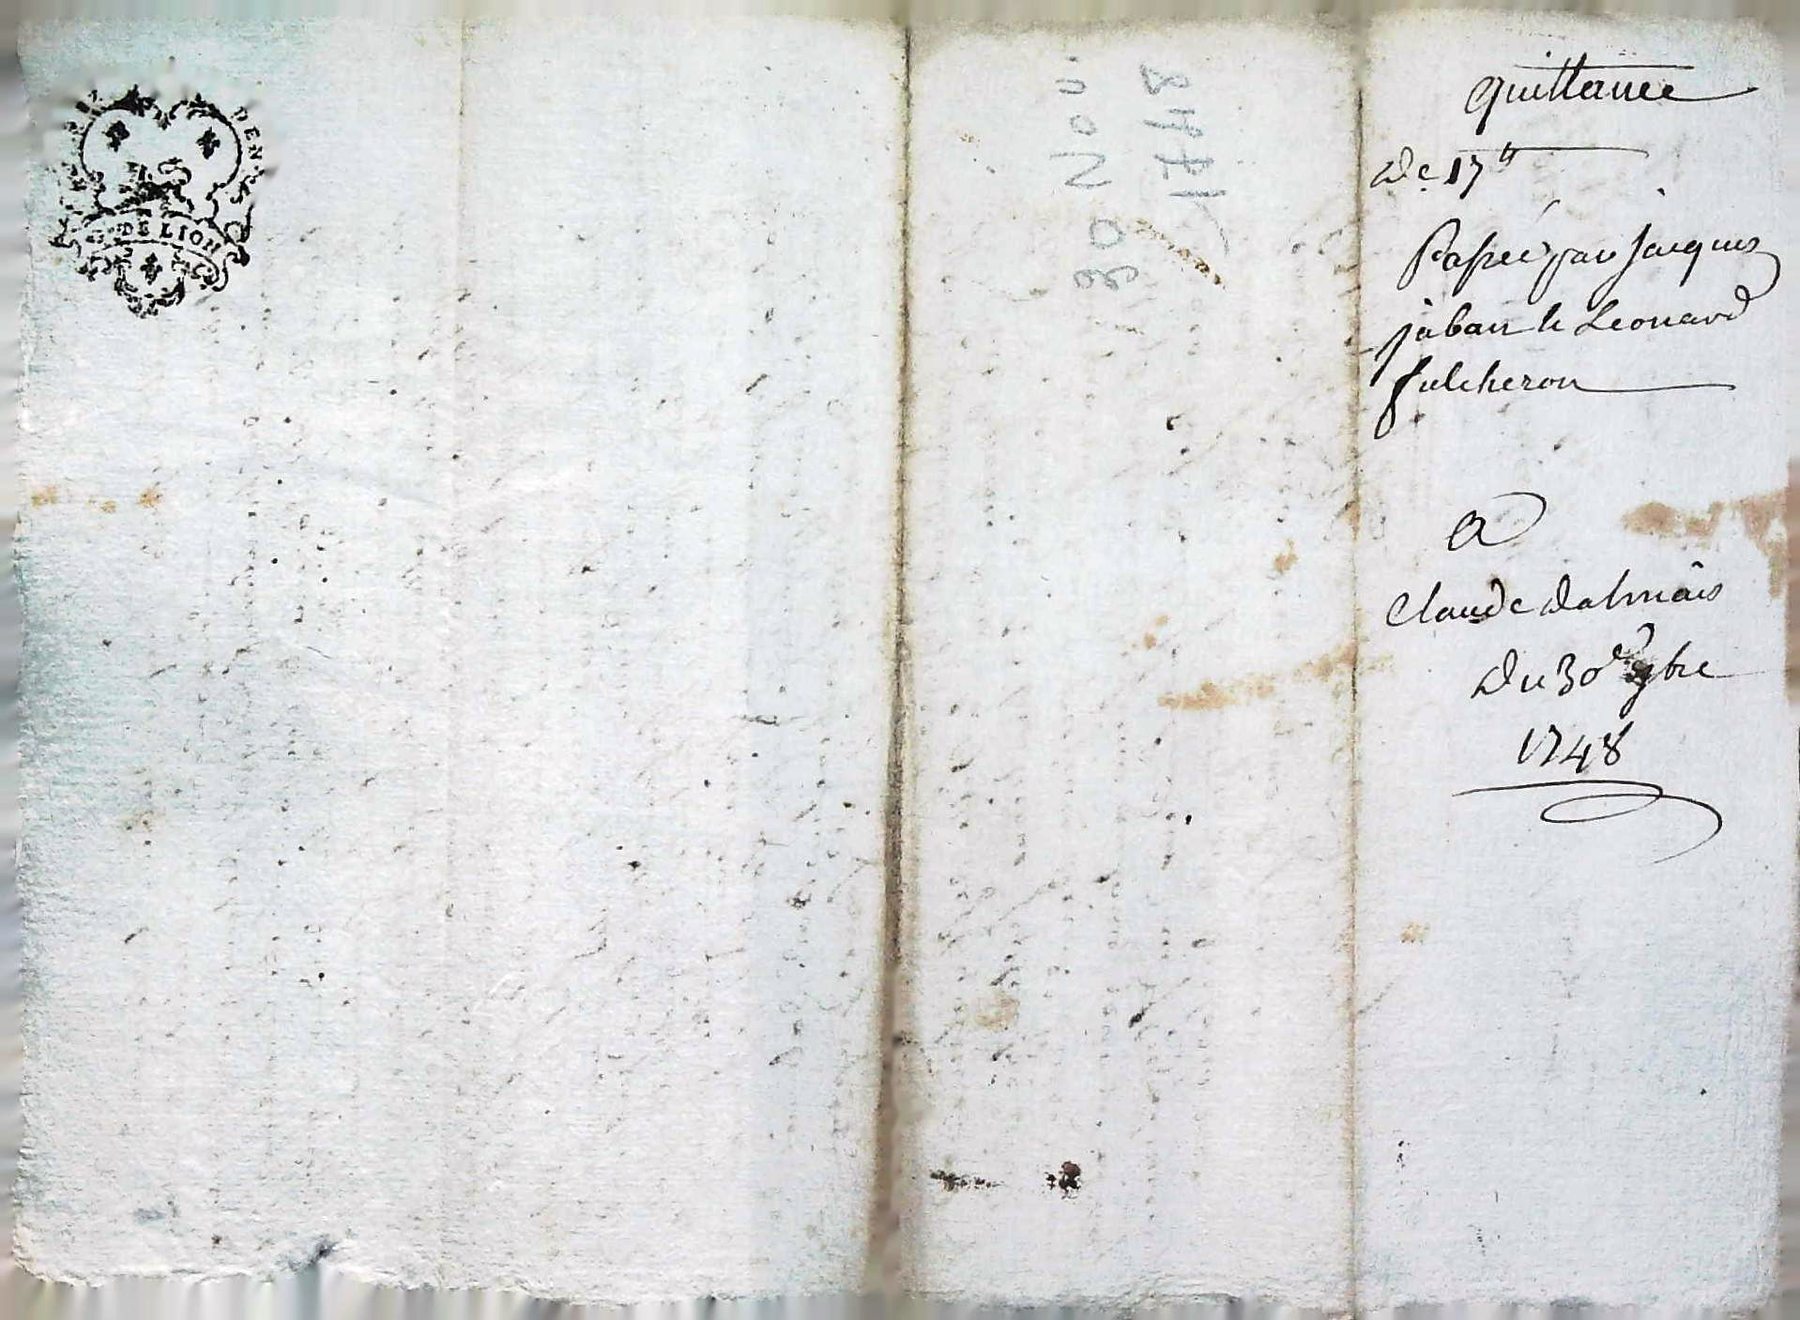 DEN
G. DE LION
30 Nov.
1748
quittance
De 17 ₶
Passée par Jacques
jaban & Leonard
fulcheron
A
Claude Dalmais
Du 30e 9bre
1748